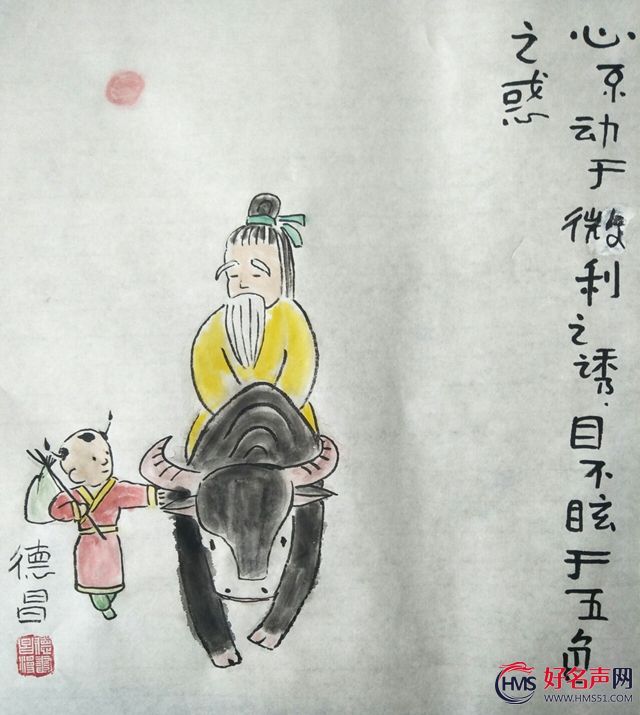 心不动于微利之诱.目不眩于五色
之惑
德昌
HMS
好名声网
WWW.HMS51.COM